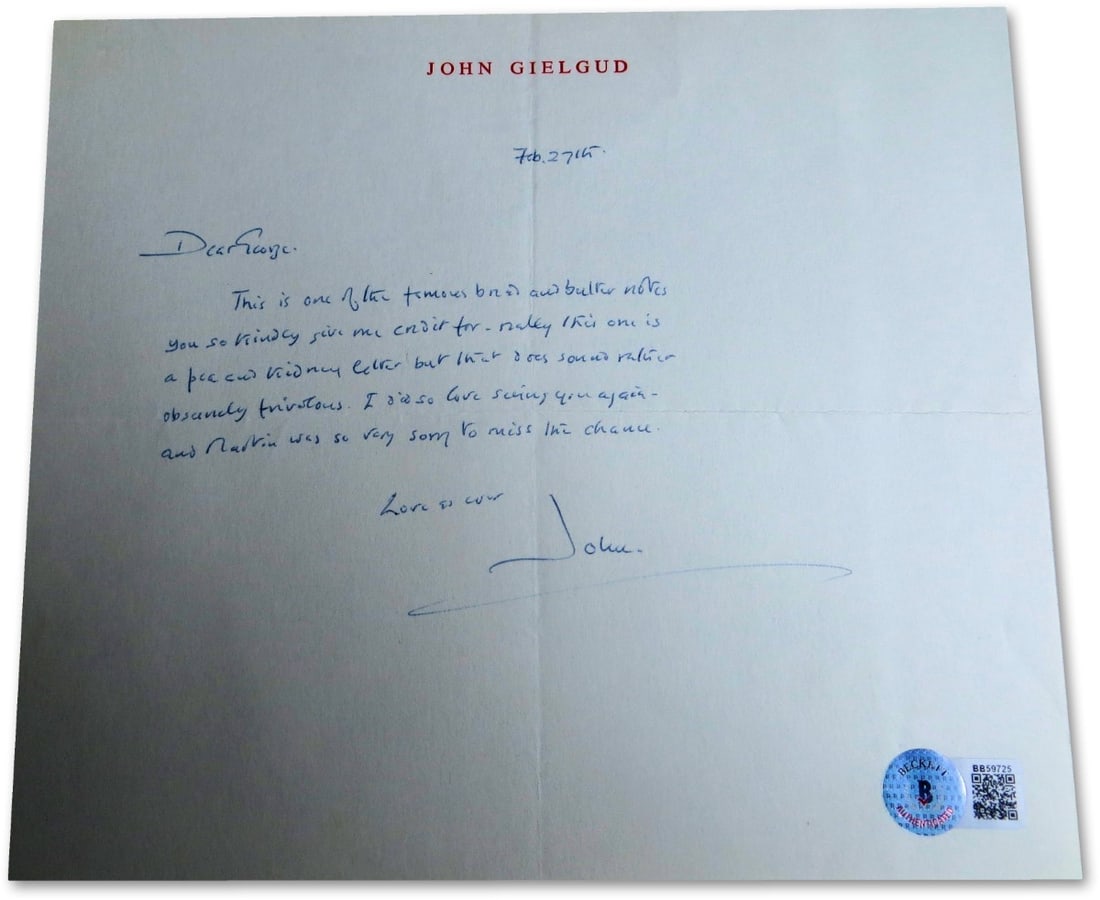 JOHN GIELGUD
Feb. 27th.
Dear George.
This is one of the famous bread and butter notes
you so kindly give me credit for - really this one is
a pea and kidney letter but that does sound rather
obscurely frivolous. I did so love seeing you again -
and Martin was so very sorry to miss the chance.
Love as ever
John.
BECKETT
B
AUTHENTICATED
BB59725